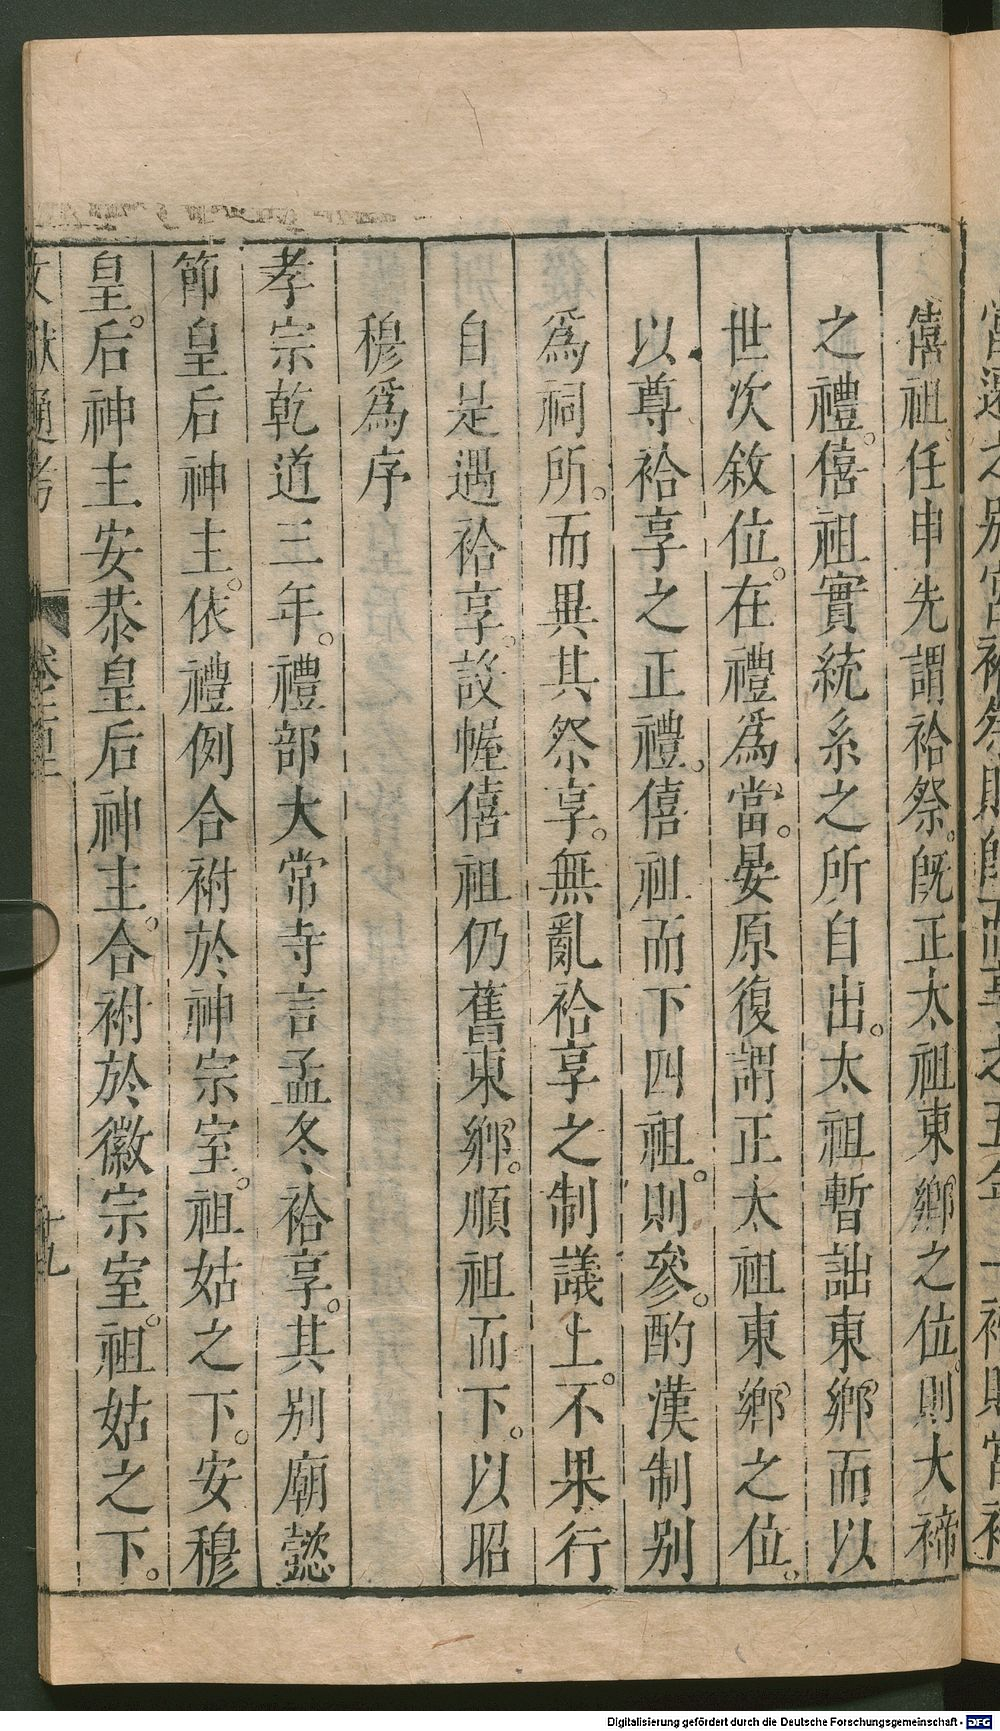 僖祖任申先謂祫祭旣正太祖東鄉之位則大禘
之禮僖祖實統系之所自出太祖暫詘東鄉而以
世次敘位在禮爲當晏原復謂正太祖東鄉之位
以尊祫享之正禮僖祖而下四祖則參酌漢制別
爲祠所而異其祭享無亂祫享之制議上不果行
自是遇祫享設幄僖祖仍舊東鄉順祖而下以昭
穆爲序
孝宗乾道三年禮部太常寺言孟冬祫享其别廟懿
節皇后神主依禮例合祔於神宗室祖姑之下安穆
皇后神主安恭皇后神主合祔於徽宗室祖姑之下
文獻通考
十九
Digitalisierung gefördert durch die Deutsche Forschungsgemeinschaft - DFG